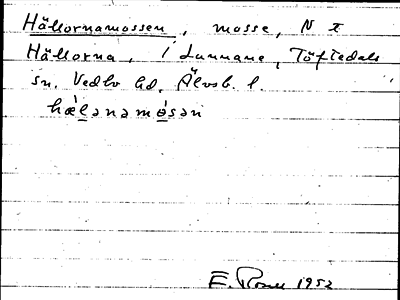 Hällornamossen, mosse, N I
Hällorna, i Lunnane, Töftedals
sn. Vedbo hd, Älvsb. l.
hæ̀lǝnamósǝn
E. Rosell 1952